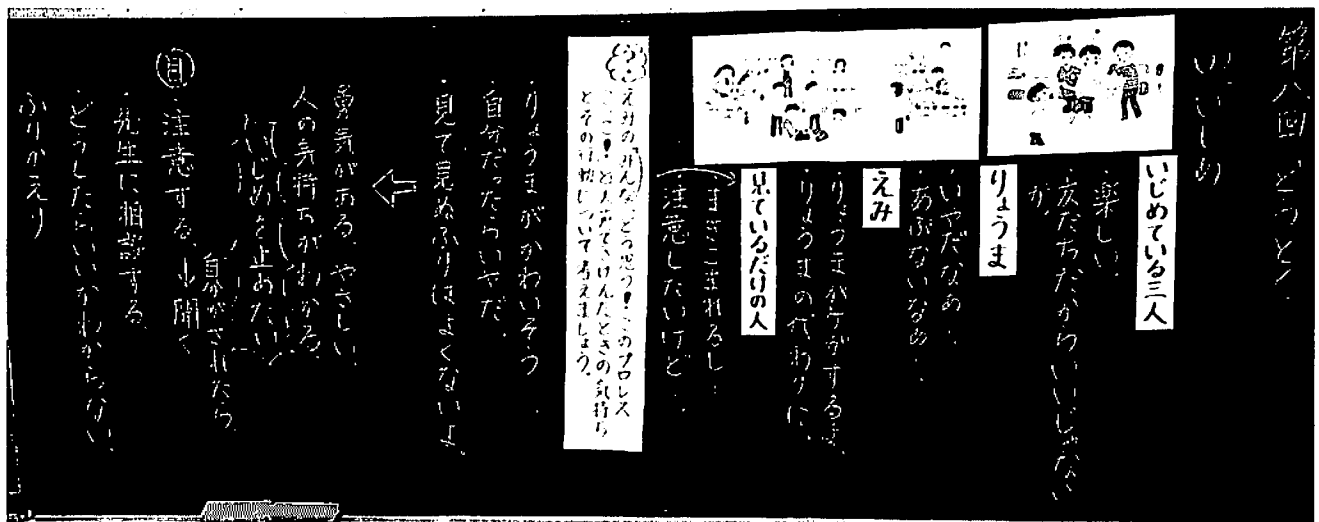 第八回 どうとく
いじめ
いじめている三人
・楽しい。
・友だちだからいいじゃないか。
りょうま
・いやだなあ。
・あぶないなあ。
えみ
・りょうまがケガするよ。
・りょうまの代わりに、
見ているだけの人
・まきこまれるし…
・注意したいけど…
えみの「みんな、どう思う!このプロレスごっこ!」と大声でさけんだときの気持ちとその行動について考えましょう。
・りょうまがかわいそう。
・自分だったらいやだ。
・見て見ぬふりはよくないよ。
勇気がある。やさしい。
人の気持ちがわかる。
いじめを止めたい
自分がされたら
・注意する。
聞く
・先生に相談する。
・どうしたらいいかわからない。
ふりかえり